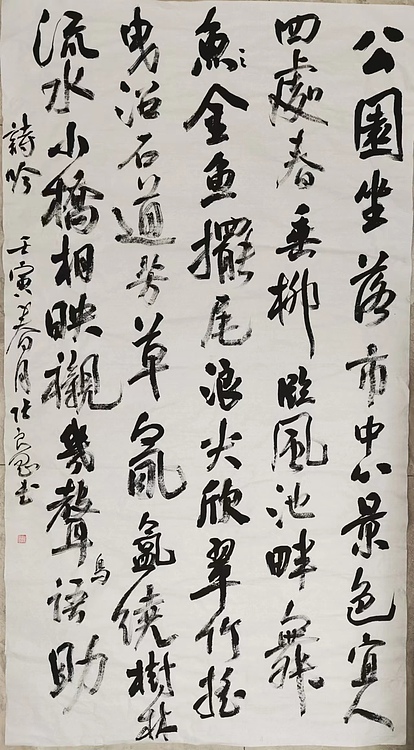 公園坐落市中心景色宜人
四處春垂柳臨風池畔舞
魚金魚擺尾浪尖欣翠竹搖
曳沿石道芳草氤氳繞樹林
流水小橋相映襯幾聲鳥語助
詩吟
壬寅春月张良书